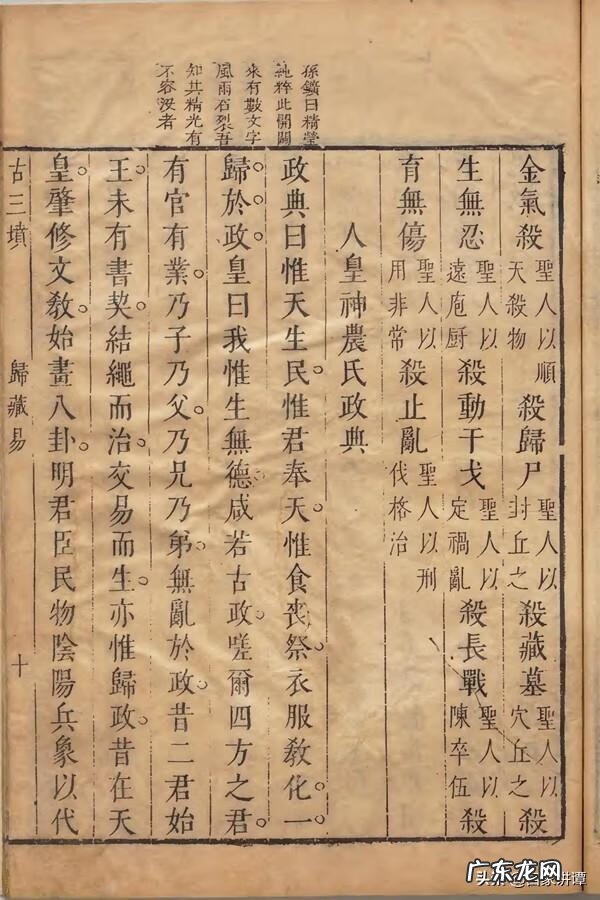 孫鑛曰精瑩
純粹此開闢
來有數文字
風雨石裂吾
知其精光有
不容沒者
金氣殺聖人以順天殺物殺歸尸聖人以封丘之殺藏墓聖人以穴丘之殺
生無忍聖人以遠庖厨殺動干戈聖人以定禍亂殺長戰聖人以陳卒伍殺
育無傷聖人以用非常殺止亂聖人以刑伐格治
人皇神農氏政典
政典曰惟天生民。惟君奉天。惟食喪祭。衣服敎化。一。
歸。於。政。皇曰我惟生無德咸若古政。嗟爾四方之君。
有官有業。乃子乃父。乃兄乃弟。無亂於政。昔二君始
王。未有書契。結繩而治。交易而生。亦惟歸政。昔在天
皇。肇修文敎。始畫八卦。明君臣民物陰陽兵象以代
古三墳 歸藏易 十
广东龙网